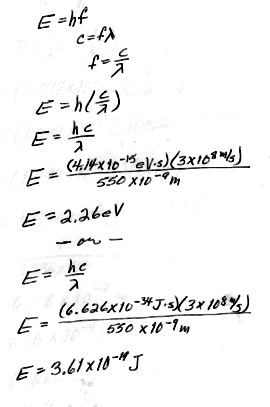 E = hf
c = fλ
f = c/λ
E = h(c/λ)
E = hc/λ
E = (4.14x10⁻¹⁵eV·s)(3x10⁸m/s)/550 x10⁻⁹m
E = 2.26eV
- or -
E = hc/λ
E = (6.626x10⁻³⁴J·s)(3x10⁸m/s)/550 x10⁻⁹m
E = 3.61x10⁻¹⁹J